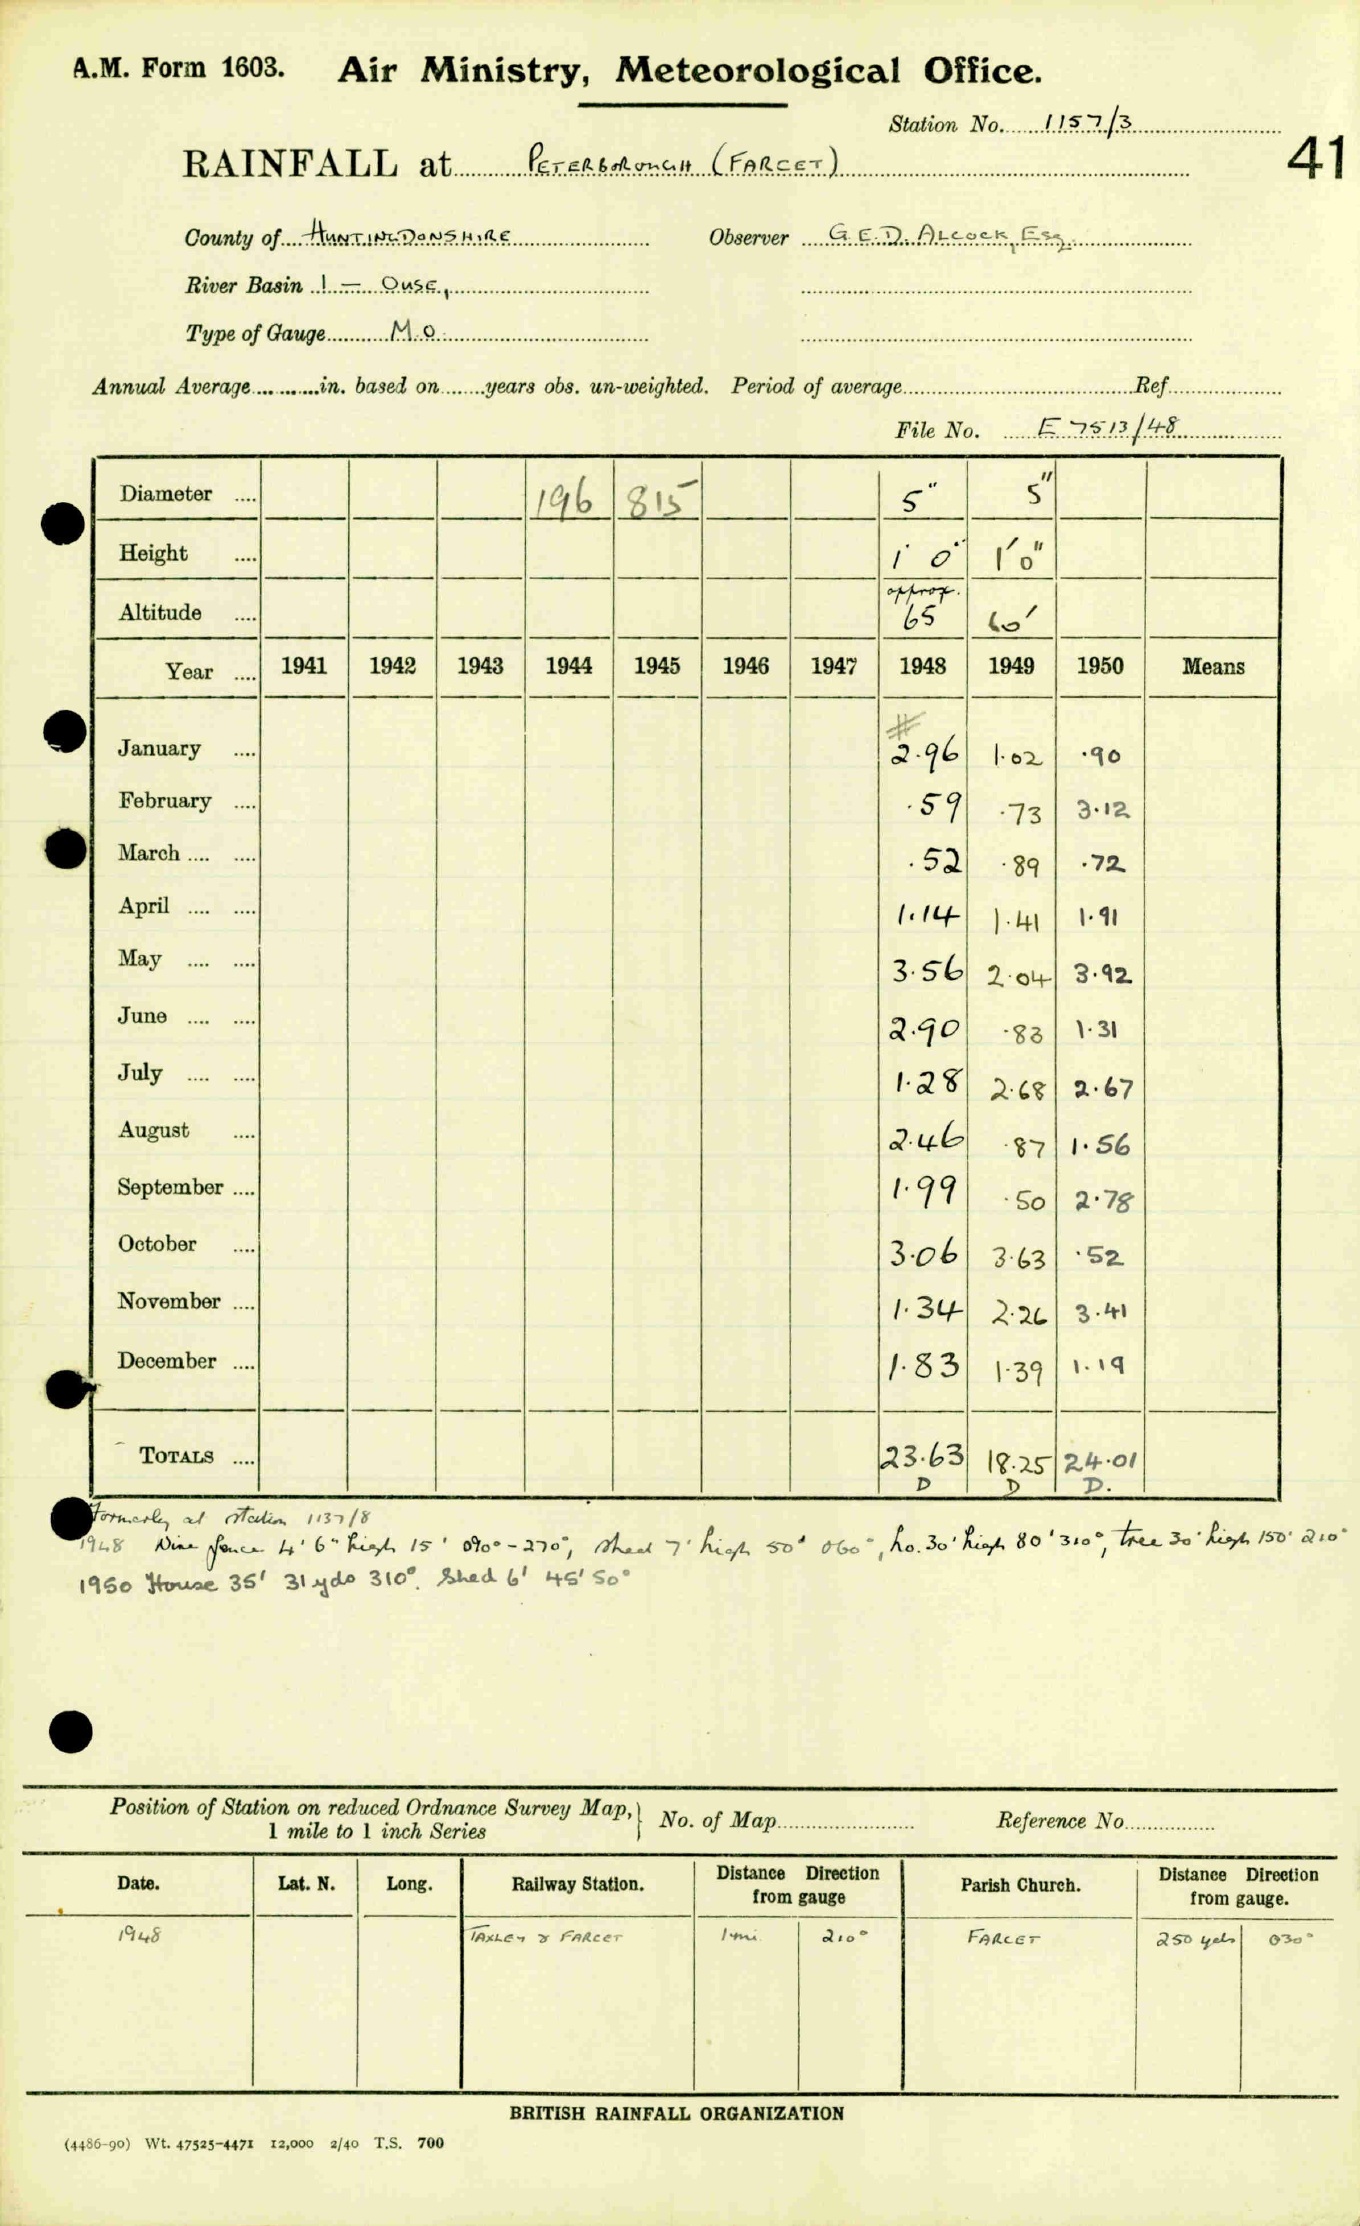 A.M. Form 1603. Air Ministry, Meteorological Office.
Station No. 1157/3
41
RAINFALL at PETERBOROUGH (FARCET)
County of HUNTINGDONSHIRE Observer G.E.D. ALCOCK, Esq.
River Basin 1 — OUSE,
Type of Gauge M.O.
Annual Average in. based on years obs. un-weighted. Period of average Ref
File No. E 7513/48
Diameter .... 196 815 5" 5"
Height .... 1' 0" 1'0"
Altitude .... approx. 65 60'
Year .... 1941 1942 1943 1944 1945 1946 1947 1948 1949 1950 Means
#
January .... 2.96 1.02 .90
February .... .59 .73 3.12
March .... .... .52 .89 .72
April .... .... 1.14 1.41 1.91
May .... .... 3.56 2.04 3.92
June .... .... 2.90 .83 1.31
July .... .... 1.28 2.68 2.67
August .... 2.46 .87 1.56
September .... 1.99 .50 2.78
October .... 3.06 3.63 .52
November .... 1.34 2.26 3.41
December .... 1.83 1.39 1.19
TOTALS .... 23.63 18.25 24.01
D D D.
Formerly at station 1137/8
1948 fence 4' 6" high 15' 090°-270°, shed 7' high 50' 060°, ho. 30' high 80' 310°, tree 30' high 150' 210°
1950 House 35' 31 yds 310°. Shed 6' 45' 50°
Position of Station on reduced Ordnance Survey Map, } No. of Map Reference No.
1 mile to 1 inch Series
Date. Lat. N. Long. Railway Station. Distance Direction from gauge Parish Church. Distance Direction from gauge.
1948 YAXLEY & FARCET 1 mi. 210° FARCET 250 yds 030°
BRITISH RAINFALL ORGANIZATION
(4486-90) Wt. 47525-4471 12,000 2/40 T.S. 700